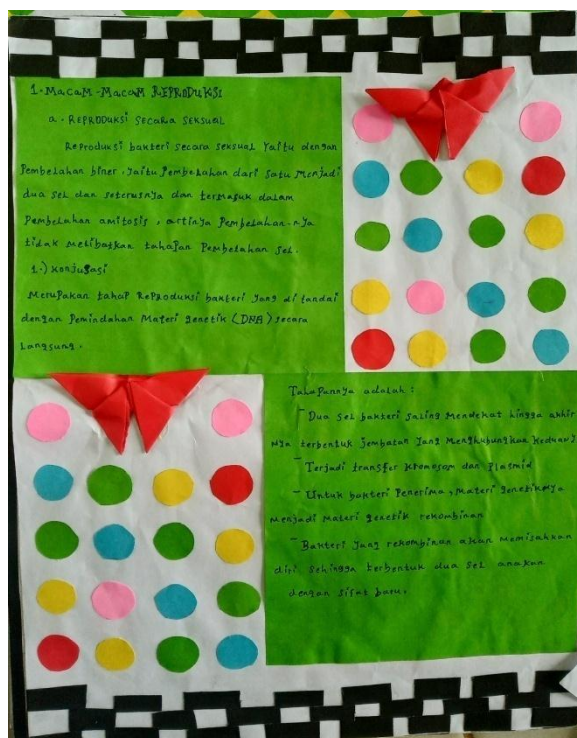 1. Macam-Macam REPRODUKSI
a. REPRODUKSI SECARA SEKSUAL
Reproduksi bakteri secara seksual Yaitu dengan
Pembelahan biner, Yaitu Pembelahan dari satu menjadi
dua sel dan seterusnya dan termasuk dalam
Pembelahan amitosis, artinya Pembelahan-nya
tidak melibatkan tahapan Pembelahan sel.
1.) Konjugasi
Merupakan tahap Reproduksi bakteri Yang di tandai
dengan Pemindahan Materi genetik (DNA) secara
Langsung.
Tahapannya adalah :
- Dua sel bakteri saling Mendekat hingga akhir
nya terbentuk jembatan Yang Menghubungkan Keduany
- Terjadi transfer Kromosom dan Plasmid
- Untuk bakteri Penerima, Materi genetiknya
menjadi Materi genetik rekombinan
- Bakteri Yang rekombinan akan memisahkan
diri sehingga terbentuk dua sel anakan
dengan sifat baru.